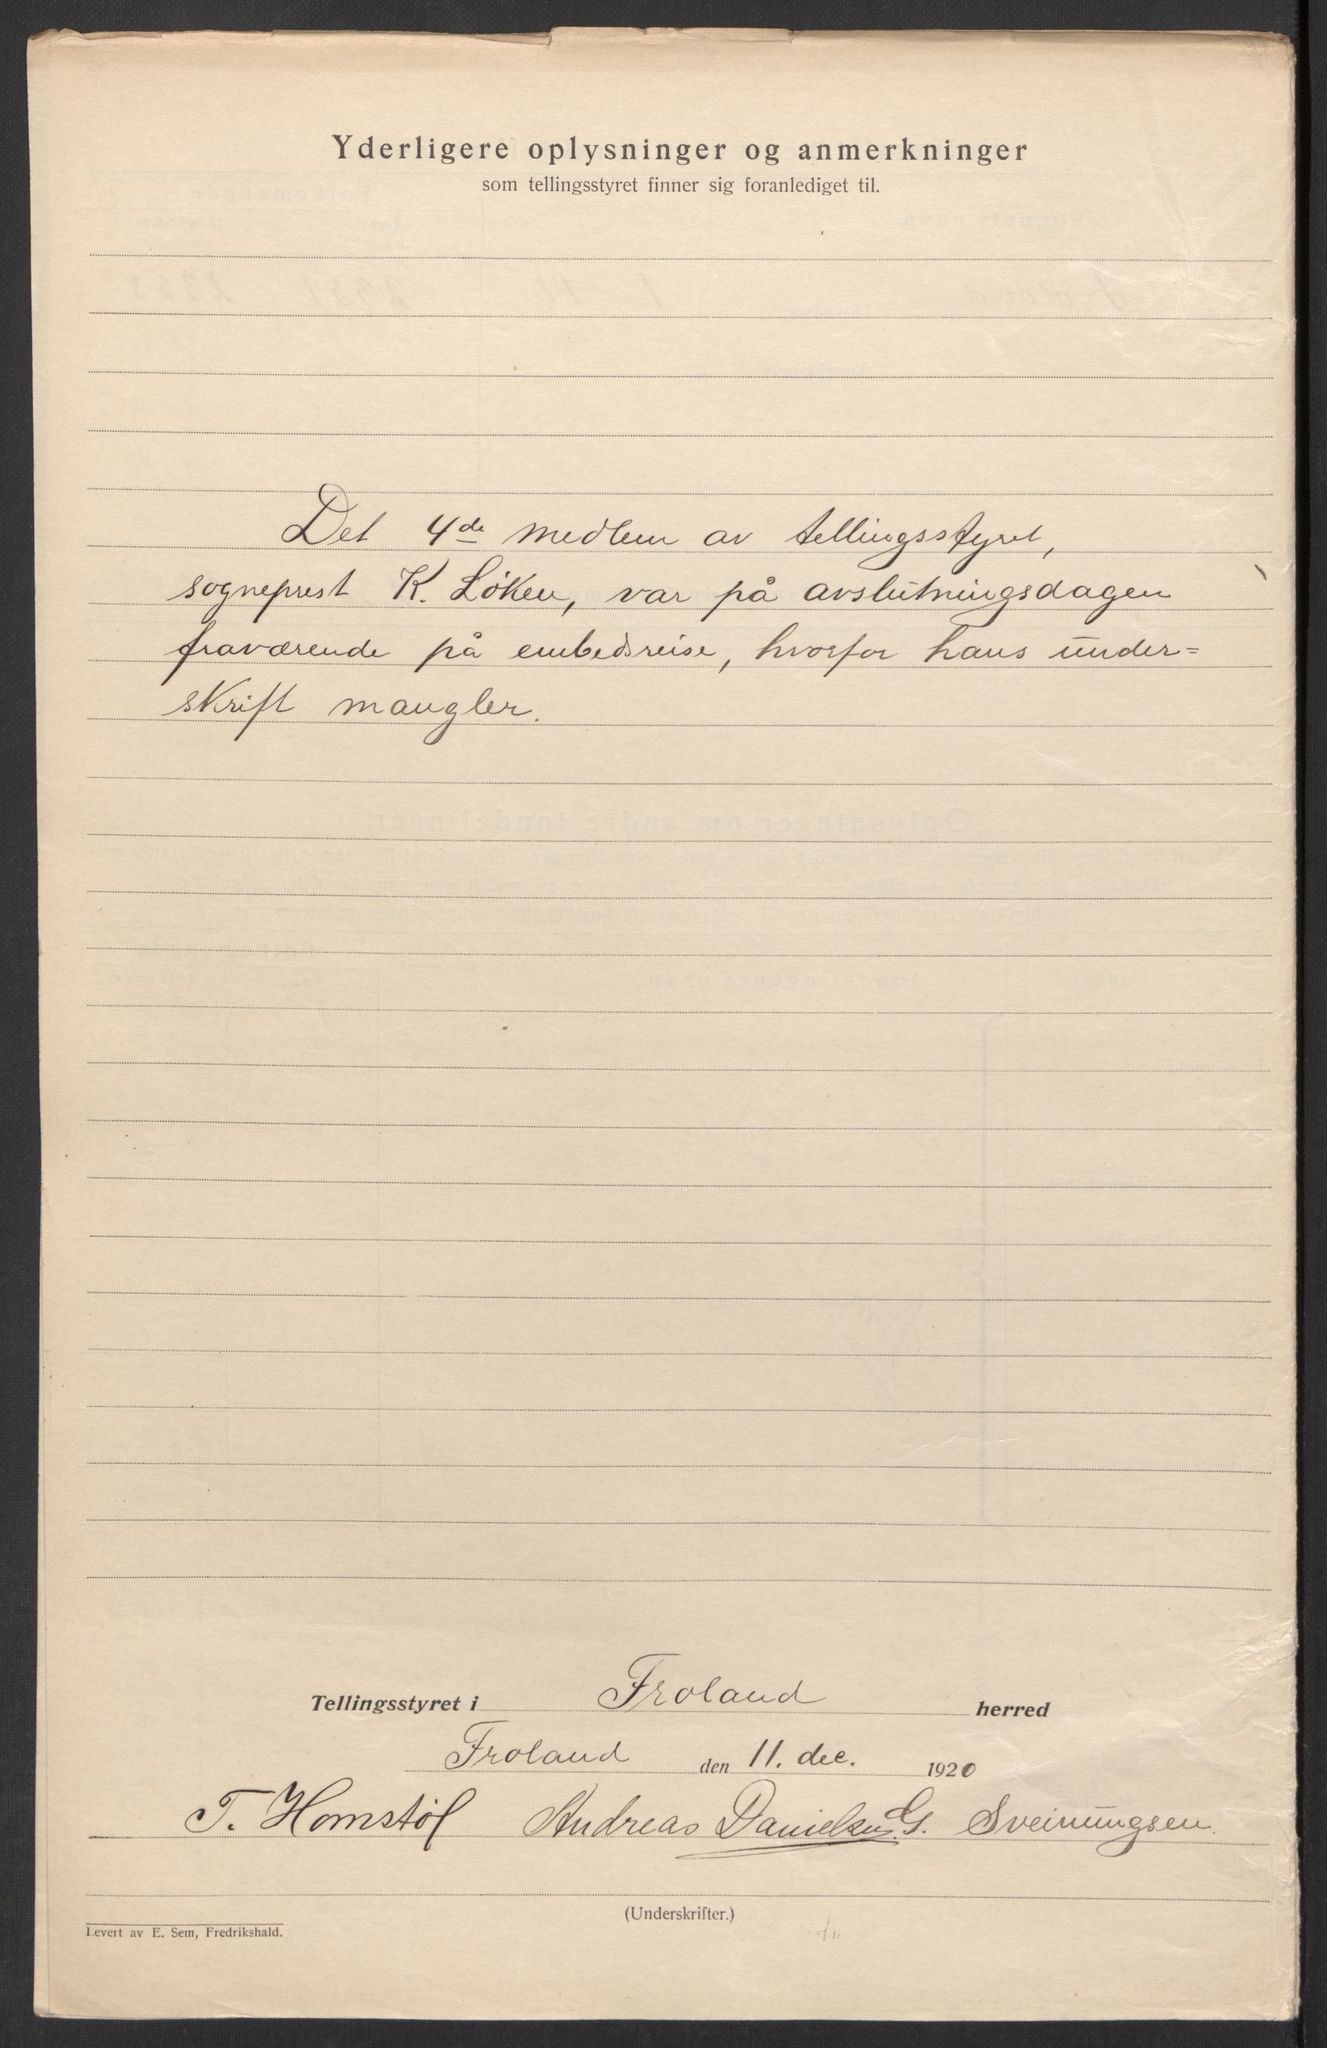 Yderligere oplysninger og anmerkninger
som tellingsstyret finner sig foranlediget til.
Det 4de medlem av tellingsstyret,
sogneprest K. Löken, var på avslutningsdagen
fraværende på embedsreise, hvorfor hans under=
skrift mangler.
Tellingsstyret i Froland herred
Froland den 11. dec. 1920
T. Homstøl Andreas Danielsen G. Sveinungsen.
(Underskrifter.)
Levert av E. Sem, Fredrikshald.